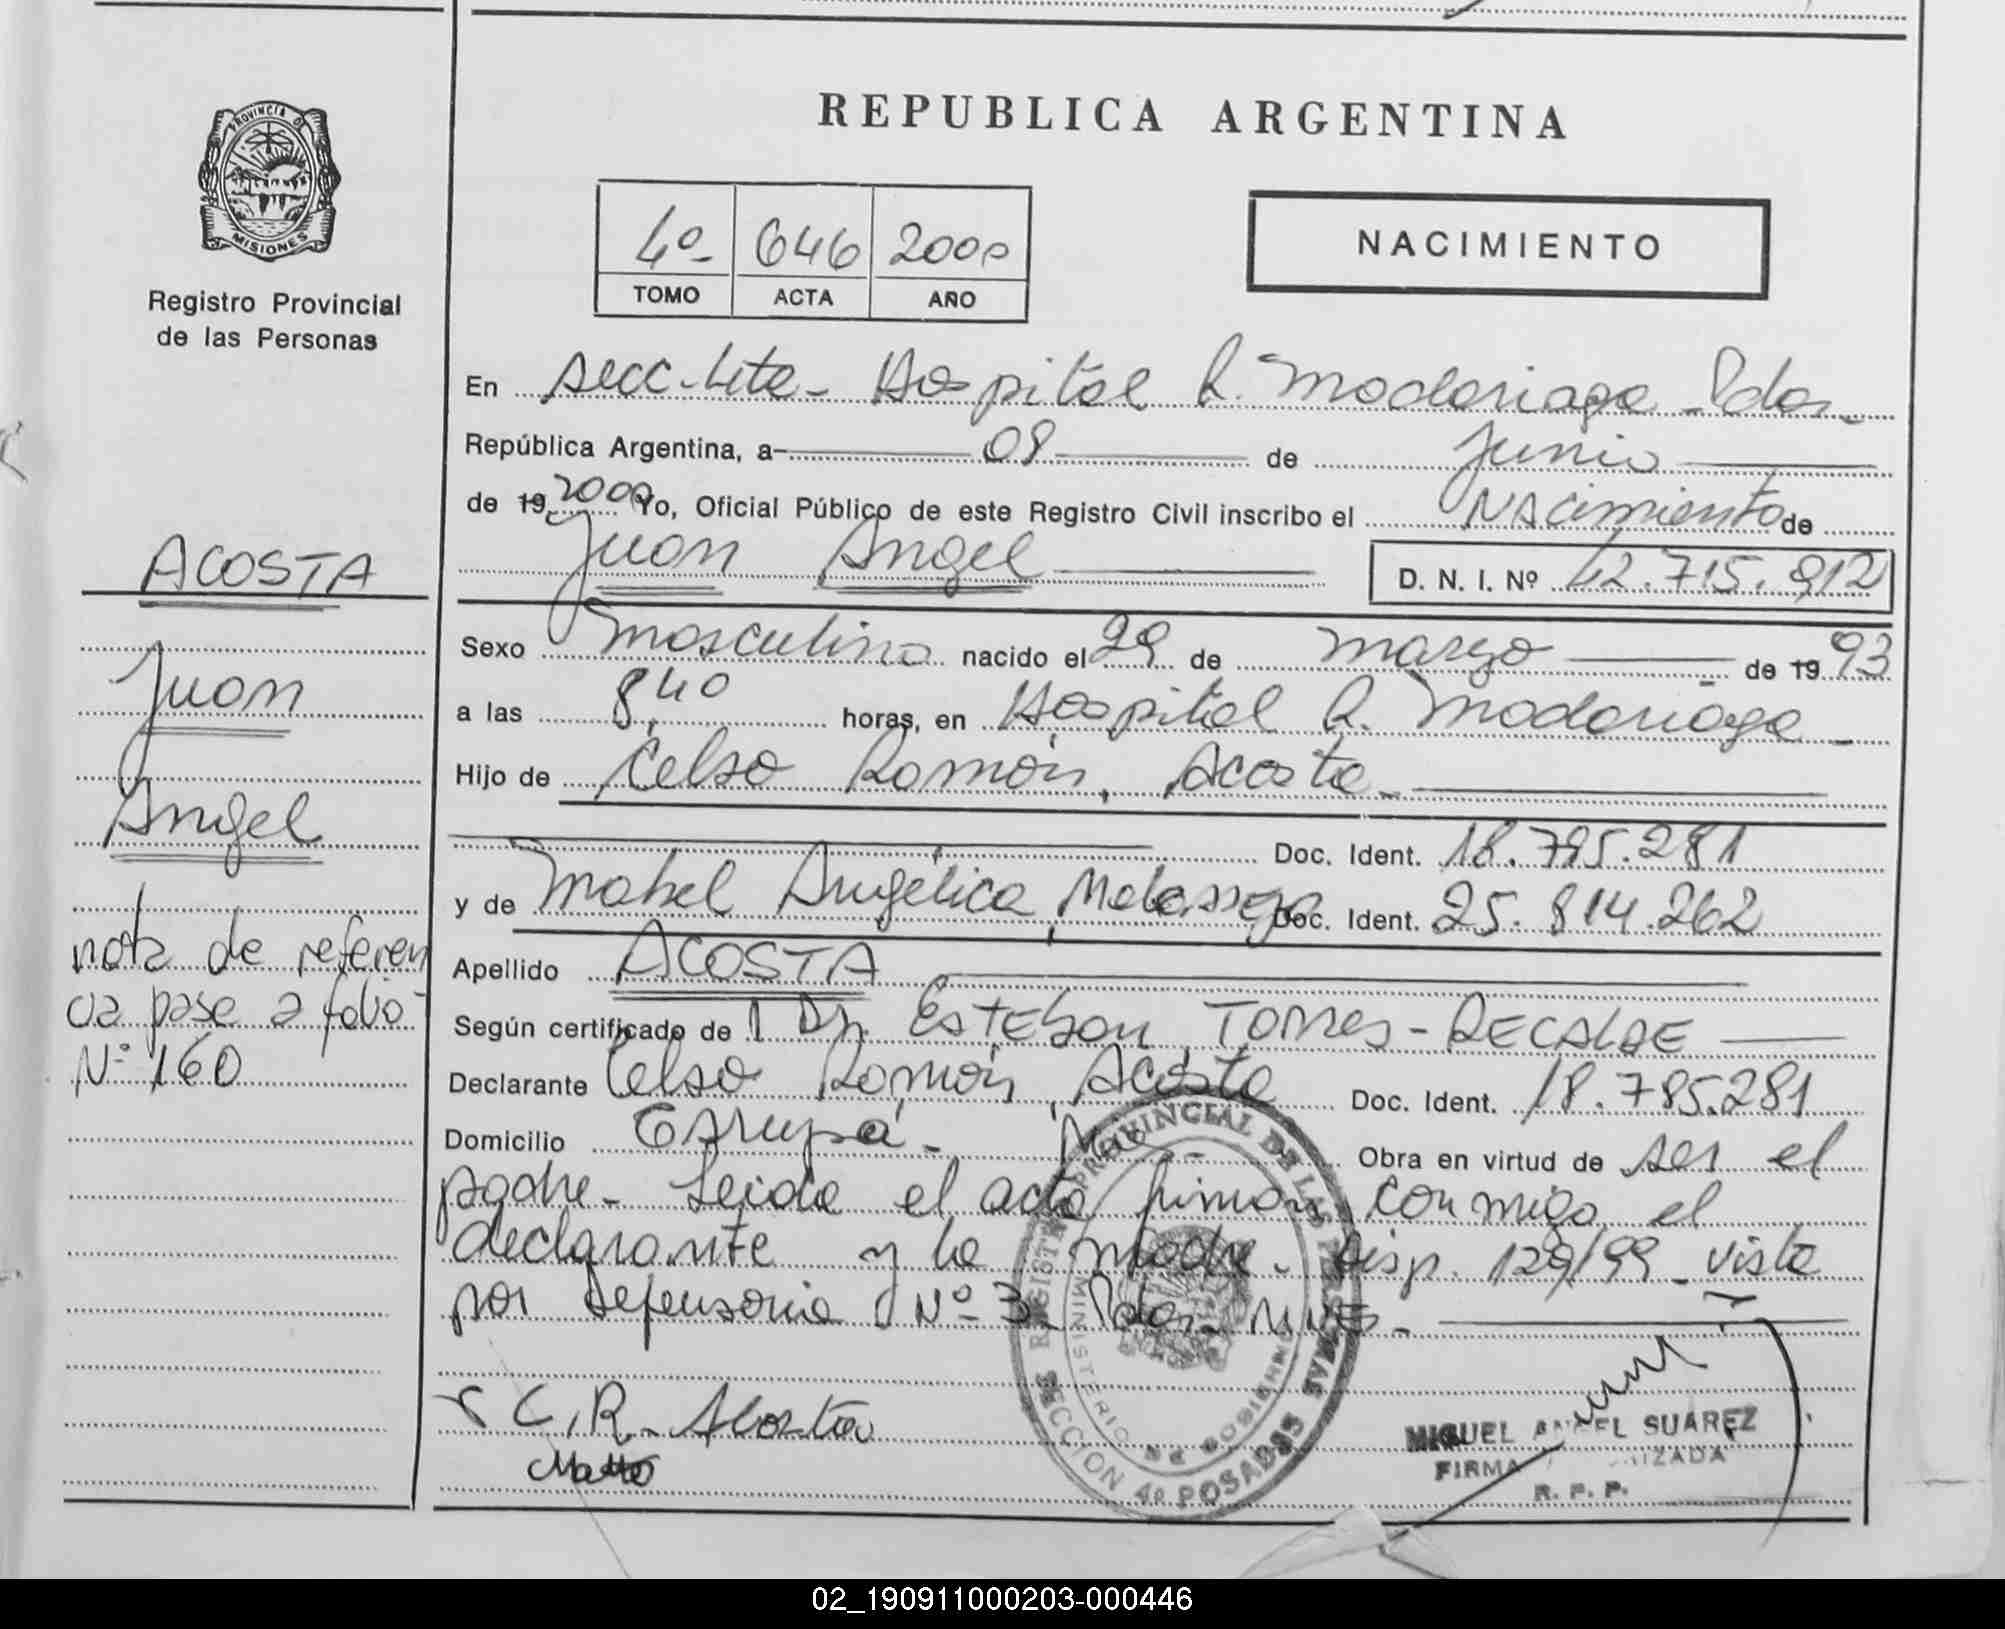 REPUBLICA ARGENTINA
PROVINCIA DE
MISIONES
Registro Provincial
de las Personas
4º 646 2000
TOMO ACTA AÑO
NACIMIENTO
En Secc. 4ta - Hospital R. Madariaga - Pdas -
República Argentina, a 08 de Junio
de 19 2000 Yo, Oficial Público de este Registro Civil inscribo el Nacimiento de
Juan Angel D. N. I. Nº 42.715.912
Sexo masculino nacido el 29 de marzo de 19 93
a las 8,40 horas, en Hospital R. Madariaga -
Hijo de Celso Ramón, Acosta -
Doc. Ident. 18.795.281
y de Mabel Angélica, Doc. Ident. 25.814.262
Apellido ACOSTA
Según certificado de l Dr. Esteban Torres - RECALDE
Declarante Celso Ramón Acosta Doc. Ident. 18.785.281
Domicilio Garupá - Obra en virtud de ser el
padre - Leida el acta firman conmigo el
declarante y la madre - Disp. 129/99 - vista
por Defensoria Nº 3 Pdas - Mnes -
C. R. Acosta
MIGUEL ANGEL SUAREZ
FIRMA
R. P. P.
REGISTRO PROVINCIAL DE LAS PERSONAS
MINISTERIO DE GOBIERNO
SECCION 4º POSADAS
ACOSTA
Juan
Angel
nota de referen
cia pase a folio
Nº 160
02_190911000203-000446